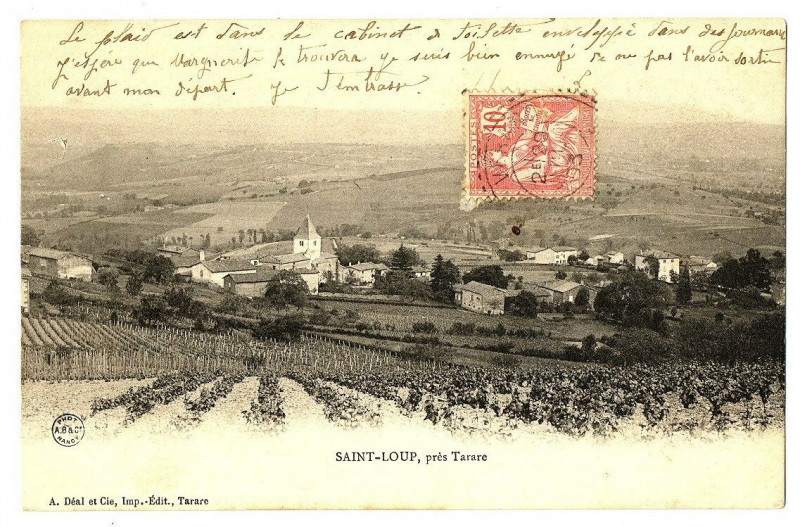 Le plaid est dans le cabinet de toilette enveloppé dans des journaux
J'espère que Marguerite le trouvera je suis bien ennuyé de ne pas l'avoir sorti
avant mon départ. Je t'embrasse.
POSTES
10
SAINT-LOUP, près Tarare
PHOT
A.B & Cie
NANCY
A. Déal et Cie, Imp.-Édit., Tarare